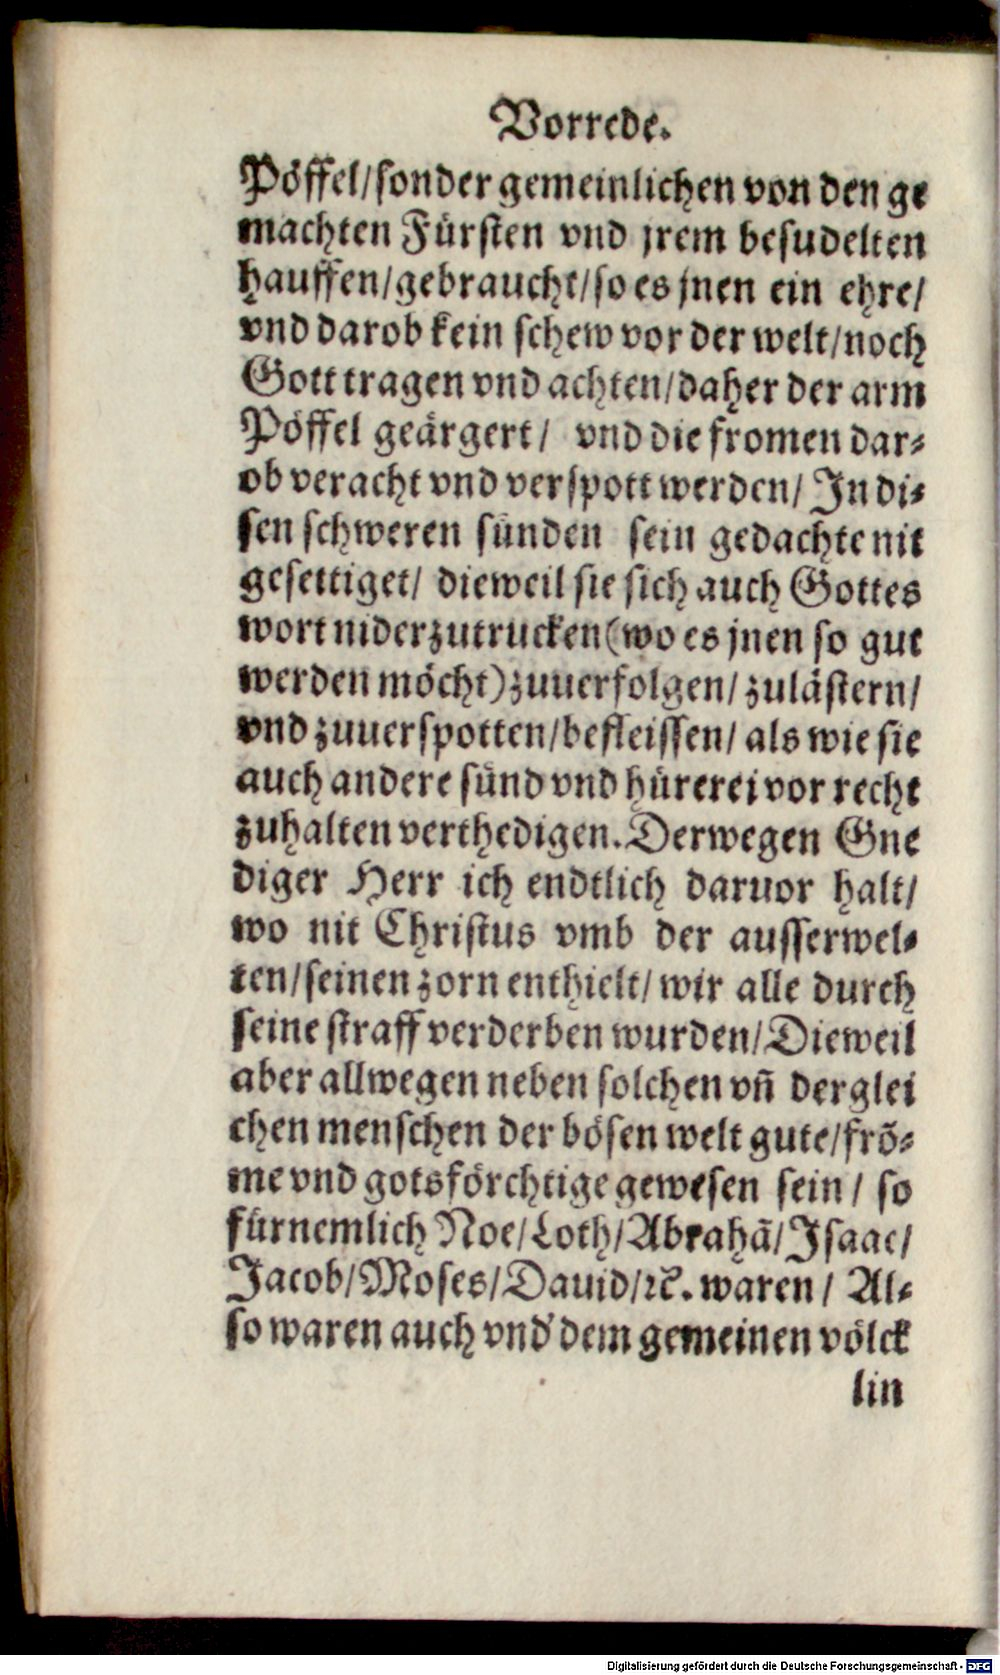 Vorrede.
Pöffel/sonder gemeinlichen von den ge
machten Fürsten vnd jrem besudelten
hauffen/gebraucht/so es jnen ein ehre/
vnd darob kein schew vor der welt/noch
Gott tragen vnd achten/daher der arm
Pöffel geärgert/ vnd die fromen dar-
ob veracht vnd verspott werden/ In di-
sen schweren sünden sein gedachte nit
gesettiget/ dieweil sie sich auch Gottes
wort niderzutrucken(wo es jnen so gut
werden möcht)zuuerfolgen/ zulästern/
vnd zuuerspotten/befleissen/ als wie sie
auch andere sünd vnd hürerei vor recht
zuhalten verthedigen. Derwegen Gne
diger Herr ich endtlich daruor halt/
wo nit Christus vmb der ausserwel-
ten/seinen zorn enthielt/ wir alle durch
seine straff verderben wurden/ Dieweil
aber allwegen neben solchen vñ derglei
chen menschen der bösen welt gute/frõ-
me vnd gotsförchtige gewesen sein/ so
fürnemlich Noe/Loth/Abrahã/Isaac/
Jacob/Moses/Dauid/ꝛc̃. waren/ Al-
so waren auch vnd' dem gemeinen völck
lin
Digitalisierung gefördert durch die Deutsche Forschungsgemeinschaft - DFG